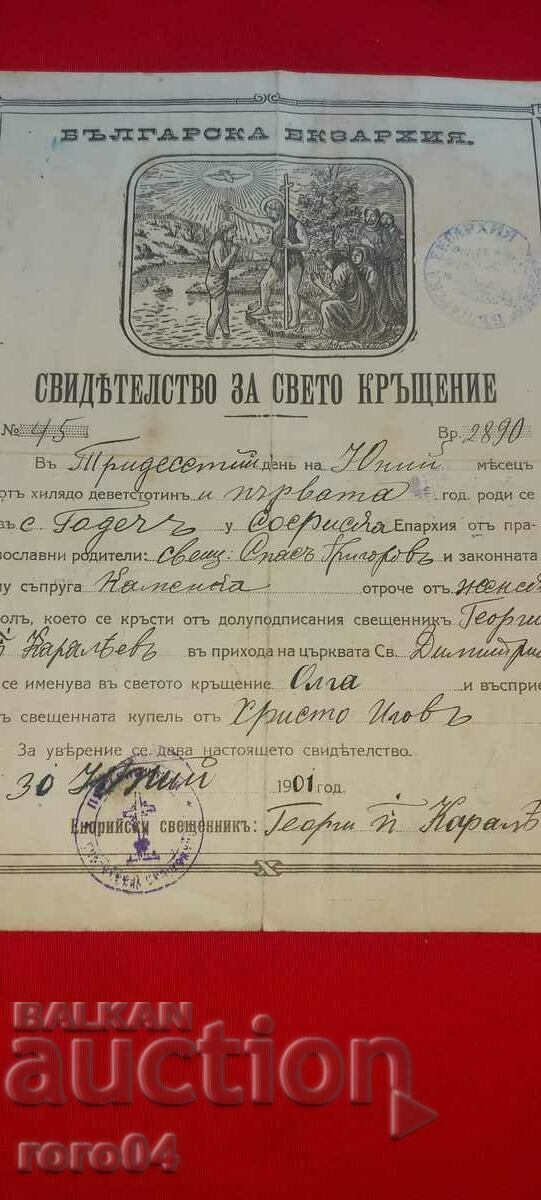 БЪЛГАРСКА ЕКЗАРХИЯ.
ЕКЗАРХИЯ
СВИДѢТЕЛСТВО ЗА СВЕТО КРЪЩЕНИЕ
№ 45 Вр. 2890
Въ Тридесетий день на Юний мѣсец
отъ хилядо деветстотин и първата год. роди се
въ с. Годечъ у Софийска Епархия отъ пра-
вославни родители: свещ. Спасъ Григоровъ и законната
му съпруга Каменка отроче отъ женск
полъ, което се кръсти отъ долуподписания свещенникъ Георги
П Каралѣевъ въ прихода на църквата Св. Димитрий
се именува въ светото кръщение Олга и въсприе
свещенната купель отъ Христо Иловъ
За увѣрение се дава настоящето свидѣтелство.
30 Юний 1901 год.
Енорийски свещенникъ: Георги П Каралѣ
BALKAN
auction
roro04